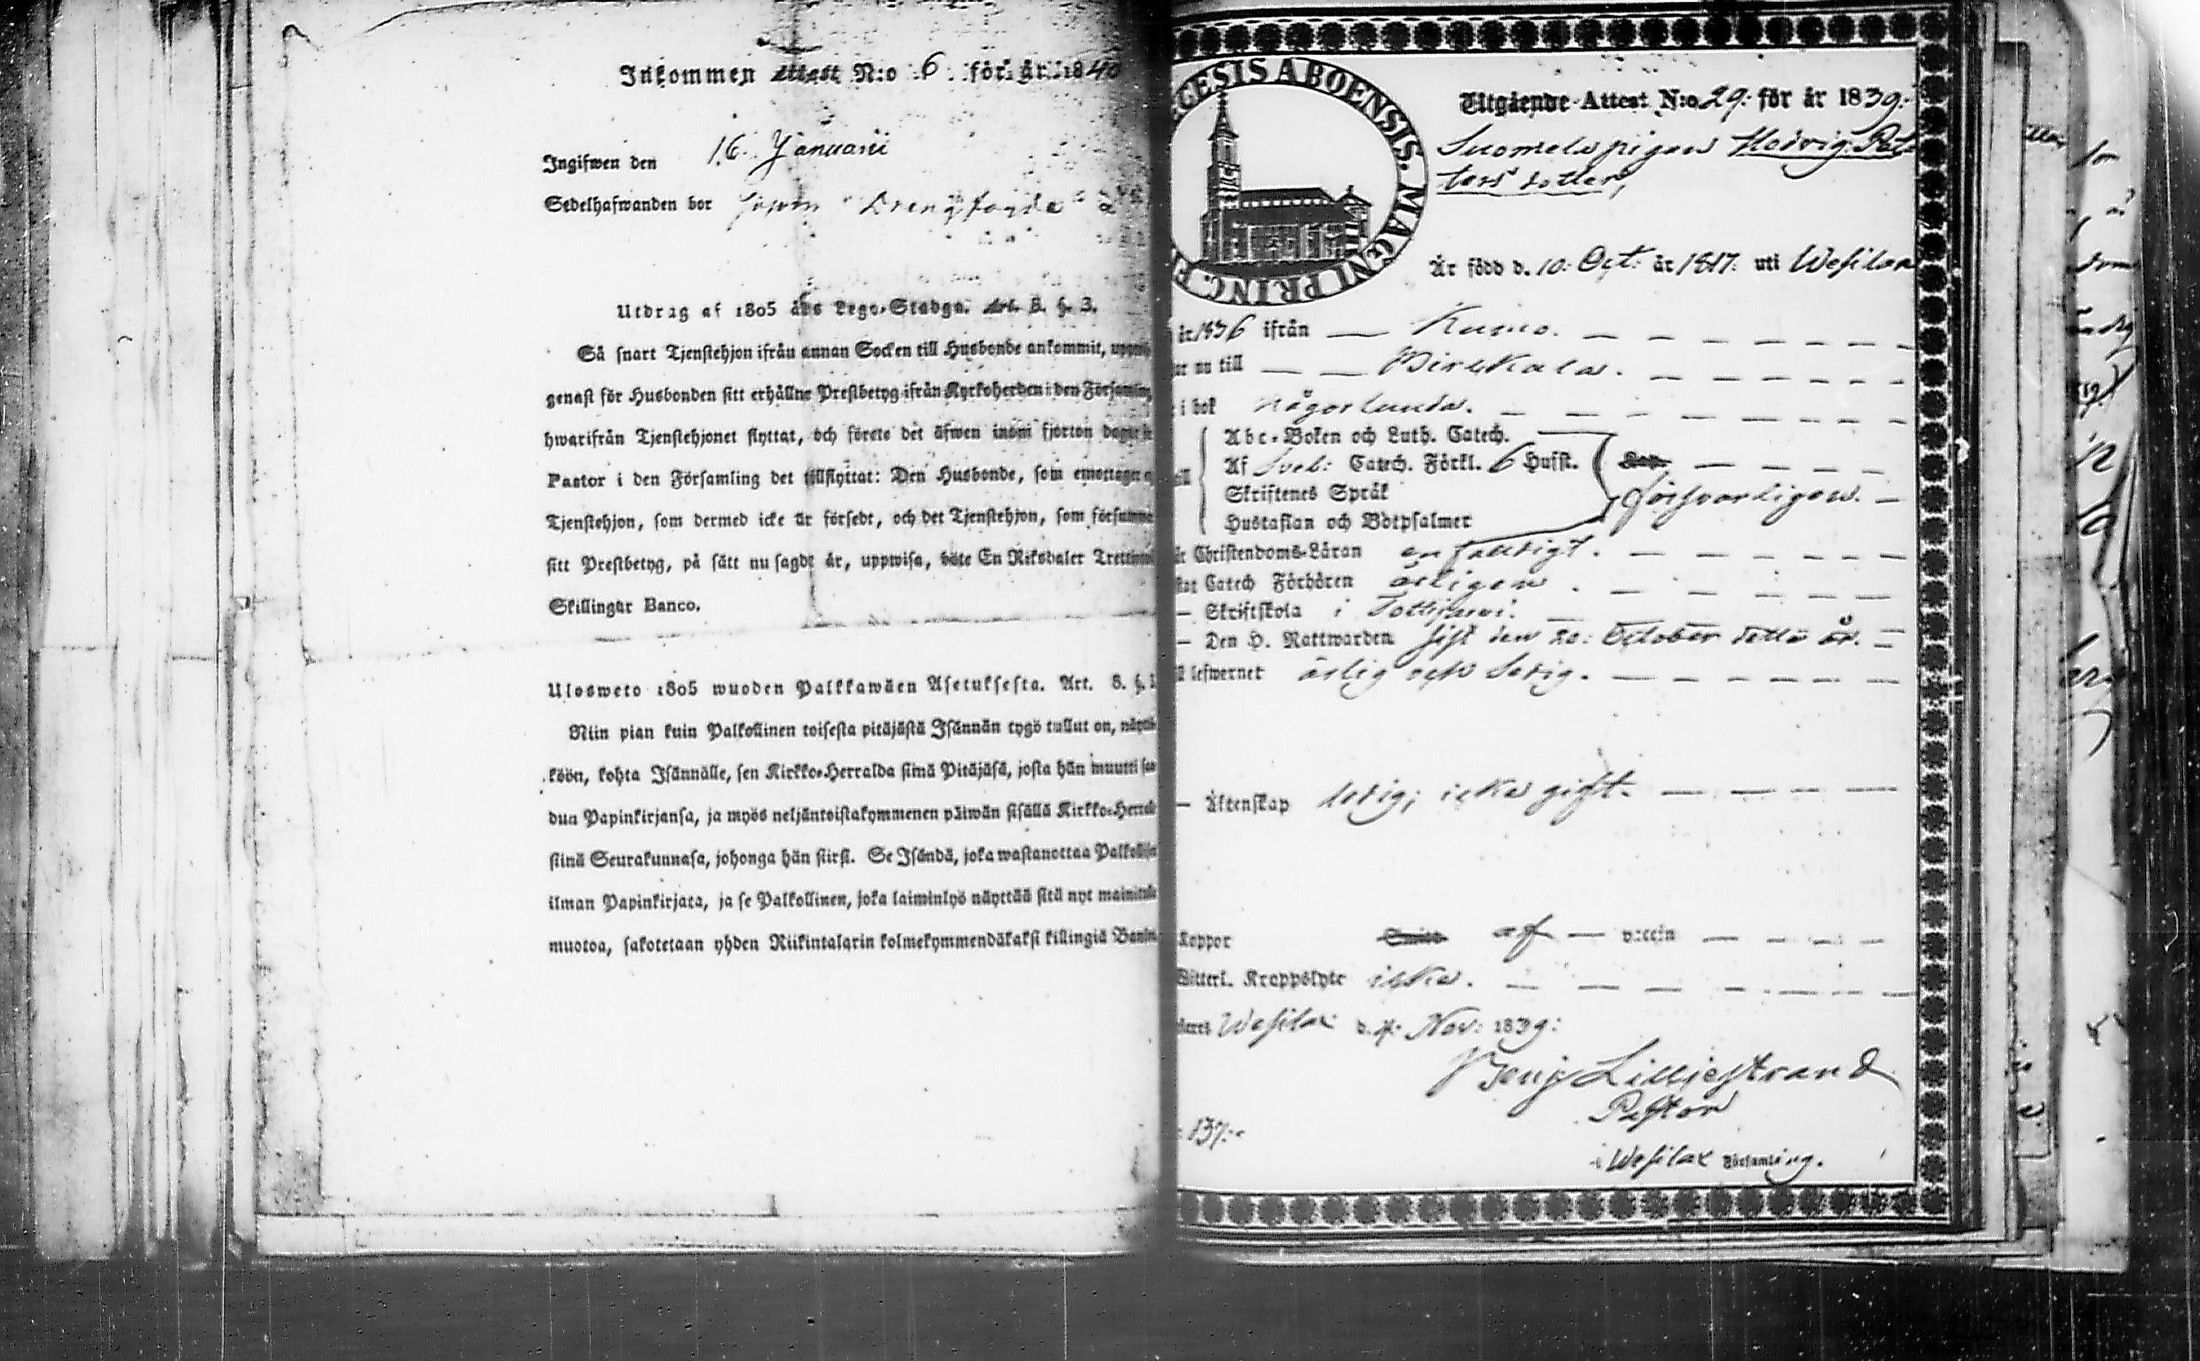 Inkommen attest N:o 6 för år 1840
Ingifwen den 16 Januarii
Sedelhafwanden bor
Utdrag af 1805 års Lego-Stadga. Art. 8. §. 3.
Så snart Tjenstehjon ifrån annan Socken till Husbonde ankommit,
genast för Husbonden sitt erhållne Prestbetyg ifrån Kyrkoherden i den Församling
hwarifrån Tjenstehjonet flyttat, och förete det äfwen inom fjorton dagar
Pastor i den Församling det tillflyttat: Den Husbonde, som emottager
Tjenstehjon, som dermed icke är försedt, och det Tjenstehjon, som
sitt Prestbetyg, på sätt nu sagdt är, uppwisa, böte En Riksdaler
Skillingar Banco.
Ulosweto 1805 wuoden Palkkawäen Asetuksesta. Art. 8. §.
Niin pian kuin Palkollinen toisesta pitäjästä Isännän tygö tullut on,
köön, kohta Isännälle, sen Kirkko-Herralda siinä Pitäjäsä, josta hän muutti
dun Papinkirjansa, ja myös neljäntoistakymmenen päiwän sisällä Kirkko-
siinä Seurakunnasa, johonga hän siirsi. Se Isändä, joka wastanottaa
ilman Papinkirjata, ja se Palkollinen, joka laiminlyö näyttää sitä nyt
muotoa, sakotetaan yhden Riikintalarin kolmekymmendäkaksi killingiä
ECESIS ABOENSIS. MAGNI PRINC. F
Utgående Attest N:o 29: för år 1839:
Suomela pigan Hedvig Pet
ters dotter,
Är född d. 10: Oct: år 1817: uti Wesilax
år 1836 ifrån — Kumo.
nu till — — Birkala.
i bok någorlunda.
Abc-Boken och Luth. Catech.
Af Sveb: Catech. Förkl. 6 Hufst.
Skriftenes Språk försvarligen.
Hustaflan och Botpsalmer
Christendoms-Läran enfaldigt.
Catech Förhören årligen.
— Skriftskola i
— Den H. Nattwarden sist den 20: October detta år.
lefwernet ärlig och sedig.
— Äktenskap ledig; icke gift.
Koppor af — vaccin
Kroppslyte icke.
Wesilax d. 4: Nov: 1839:
Benj Lilljestrand
Pastor
137:
i Wesilax Församling.